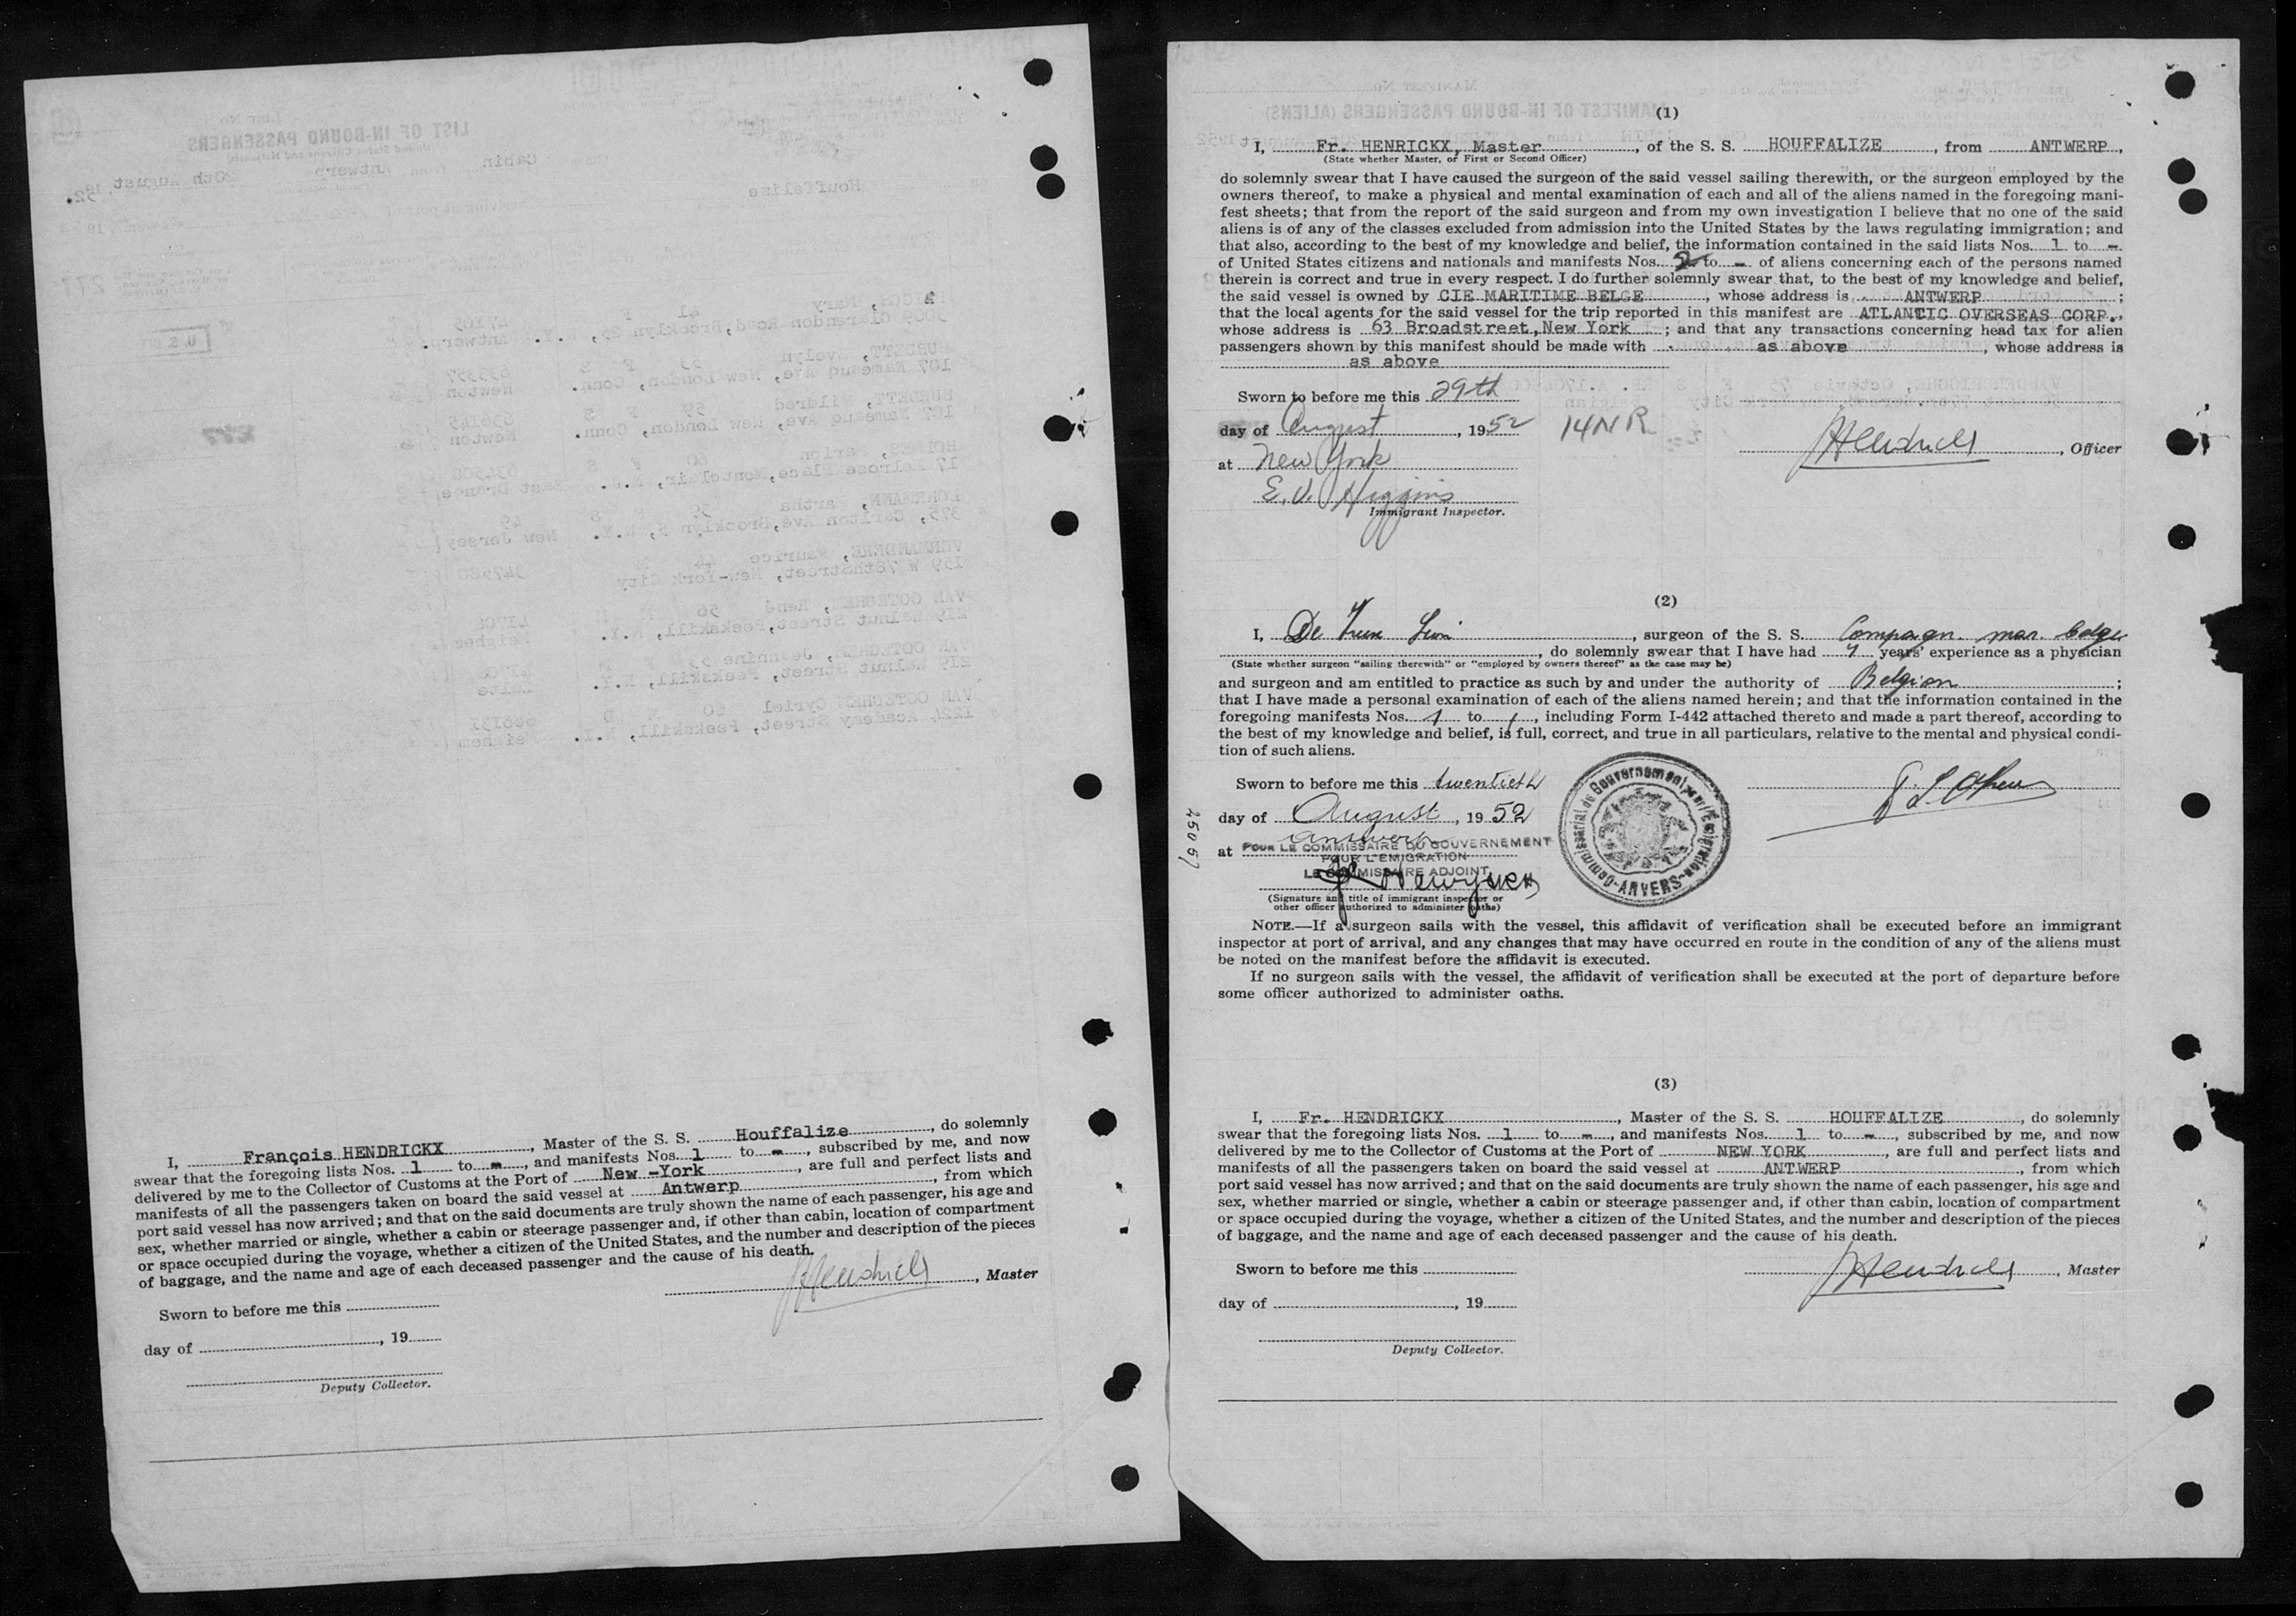 I, François HENDRICKX, Master of the S. S. Houffalize, do solemnly
swear that the foregoing lists Nos. 1 to -, and manifests Nos. 1 to -, subscribed by me, and now
delivered by me to the Collector of Customs at the Port of New -York, are full and perfect lists and
manifests of all the passengers taken on board the said vessel at Antwerp, from which
port said vessel has now arrived; and that on the said documents are truly shown the name of each passenger, his age and
sex, whether married or single, whether a cabin or steerage passenger and, if other than cabin, location of compartment
or space occupied during the voyage, whether a citizen of the United States, and the number and description of the pieces
of baggage, and the name and age of each deceased passenger and the cause of his death.
, Master
Sworn to before me this
day of , 19
Deputy Collector.
(1)
I, Fr. HENRICKX, Master, of the S. S. HOUFFALIZE, from ANTWERP,
(State whether Master, or First or Second Officer)
do solemnly swear that I have caused the surgeon of the said vessel sailing therewith, or the surgeon employed by the
owners thereof, to make a physical and mental examination of each and all of the aliens named in the foregoing mani-
fest sheets; that from the report of the said surgeon and from my own investigation I believe that no one of the said
aliens is of any of the classes excluded from admission into the United States by the laws regulating immigration; and
that also, according to the best of my knowledge and belief, the information contained in the said lists Nos. 1 to -
of United States citizens and nationals and manifests Nos. 2 to - of aliens concerning each of the persons named
therein is correct and true in every respect. I do further solemnly swear that, to the best of my knowledge and belief,
the said vessel is owned by CIE MARITIME BELGE, whose address is ANTWERP;
that the local agents for the said vessel for the trip reported in this manifest are ATLANTIC OVERSEAS CORP.,
whose address is 63 Broadstreet, New York; and that any transactions concerning head tax for alien
passengers shown by this manifest should be made with as above, whose address is
as above
Sworn to before me this 29th
day of August, 1952 14NR
, Officer
at New York
E. V. Higgins
Immigrant Inspector.
(2)
I, De , surgeon of the S. S. Compagn. mar. belge
, do solemnly swear that I have had years' experience as a physician
(State whether surgeon "sailing therewith" or "employed by owners thereof" as the case may be)
and surgeon and am entitled to practice as such by and under the authority of Belgian;
that I have made a personal examination of each of the aliens named herein; and that the information contained in the
foregoing manifests Nos. 1 to /, including Form I-442 attached thereto and made a part thereof, according to
the best of my knowledge and belief, is full, correct, and true in all particulars, relative to the mental and physical condi-
tion of such aliens.
Sworn to before me this twentieth
day of August, 1952
at Antwerp
POUR LE COMMISSAIRE DU GOUVERNEMENT
POUR L'EMIGRATION
LE COMMISSAIRE ADJOINT
Commissariat du Gouvernement pour l'Emigration - ANVERS -
(Signature and title of immigrant inspector or
other officer authorized to administer oaths)
NOTE.—If a surgeon sails with the vessel, this affidavit of verification shall be executed before an immigrant
inspector at port of arrival, and any changes that may have occurred en route in the condition of any of the aliens must
be noted on the manifest before the affidavit is executed.
If no surgeon sails with the vessel, the affidavit of verification shall be executed at the port of departure before
some officer authorized to administer oaths.
(3)
I, Fr. HENDRICKX, Master of the S. S. HOUFFALIZE, do solemnly
swear that the foregoing lists Nos. 1 to -, and manifests Nos. 1 to -, subscribed by me, and now
delivered by me to the Collector of Customs at the Port of NEW YORK, are full and perfect lists and
manifests of all the passengers taken on board the said vessel at ANTWERP, from which
port said vessel has now arrived; and that on the said documents are truly shown the name of each passenger, his age and
sex, whether married or single, whether a cabin or steerage passenger and, if other than cabin, location of compartment
or space occupied during the voyage, whether a citizen of the United States, and the number and description of the pieces
of baggage, and the name and age of each deceased passenger and the cause of his death.
Sworn to before me this
, Master
day of , 19
Deputy Collector.